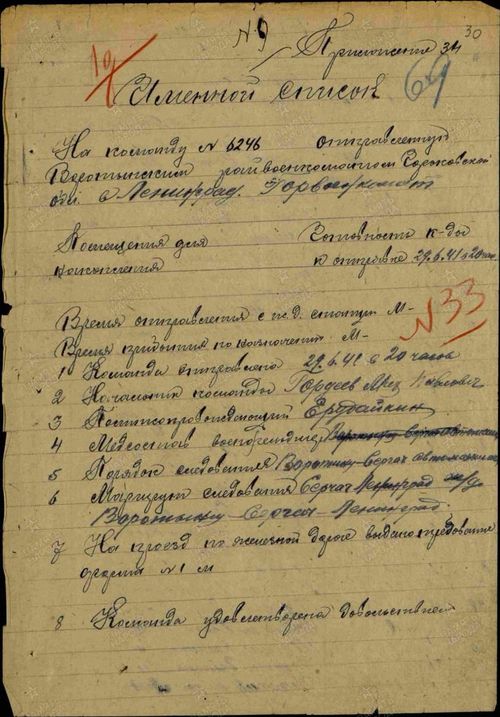 30
N 9
Приложение 34
19
Именной список
649
На команду N 6246 отправленную
Воротынским райвоенкоматом Горьковской
обл. в Ленинград. Горвоенкомат
Помещения для Готовность к-ды
накопления к отправке 29.6.41 в 20 час.
Время отправления с ж.д. станции М-
Время прибытия по назначению М-
N 33
1 Команда отправлена 29.6.41 в 20 часов
2 Начальник команды Гордеев Павлович
3 Политсопровождающий
4 Медсостав военфельдшер
5 Порядок следования Воротынец Сергач автомашинами
6 Маршрут следования Сергач Ленинград ж/д
Воротынец – Сергач – Ленинград.
7 На проезд по железной дороге выдано требование
форма N 1 м
8 Команда удовлетворена довольствием